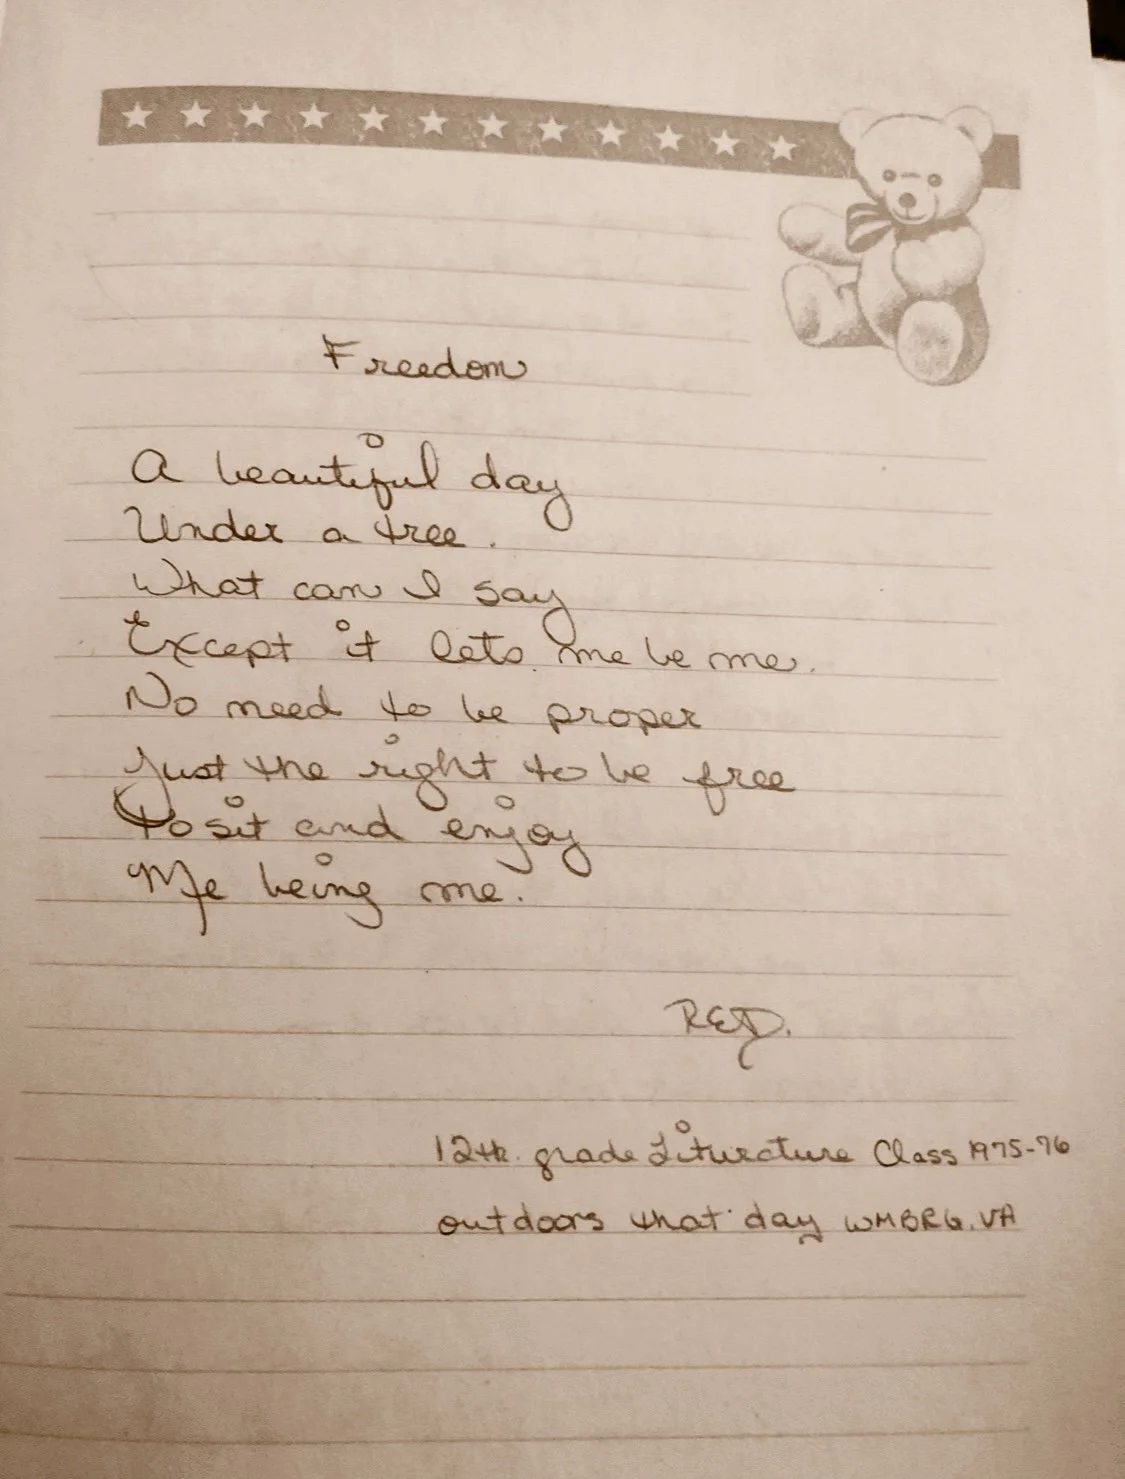 Freedom
A beautiful day
Under a tree.
What can I say
Except it lets me be me.
No need to be proper
Just the right to be free
to sit and enjoy
Me being me.
RED.
12th. grade Liturature Class 1975-76
outdoors that day WMBRG. VA